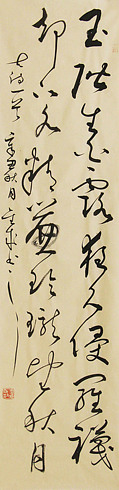 玉阶生白露夜久侵罗襪
却下水精簾玲瓏望秋月
古诗一首 辛丑秋月